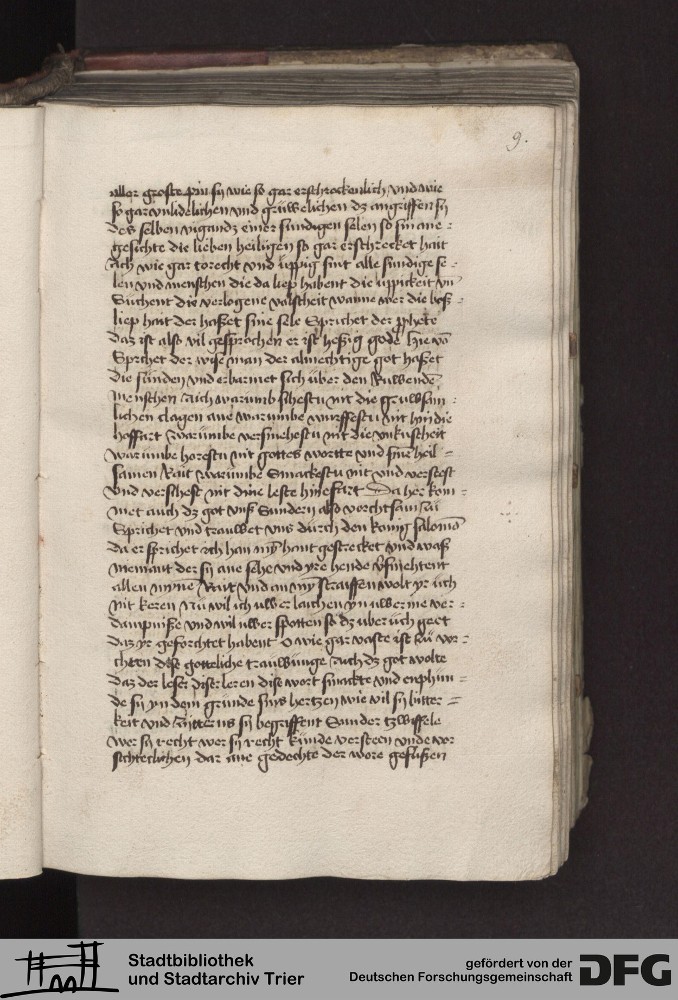 9.
aller groste pin sy wie so gar erschrockenlich vnd wie
so gar vnlidelichen vnd gruwelichen dz angriffen sy
des selben vigandz einer sundigen selen so sin ane -
gesichte die lieben heiligen so gar erschrecket hait
Ach wie gar torecht vnd uppig sint alle sundige se -
len vnd menschen die da liep habent die uppickeit vn̄
Suchent die verlogene valscheit wanne wer die bosz -
liep hait der haßet sine sele Sprichet der pphete
daz ist also vil gesprochen er ist heßig gode
Sprchet der wise man der almechtige got haßet
die sunden vnd erbarmet sich über den Ruwenden
menschen Auch warumb sihestu nit die gruwsam -
lichen clagen ane warumbe wurffestu nit hin die
hoffart warumbe versmehestu nit die vnkuscheit
warumbe horestu nit gottes wortte vnd sine heil -
samen Rait warumbe Smackestu nit vnd verstest
vnd nit dine leste hinefart Da her kom -
met auch dz got vnß Sundern
Sprichet vnd trauwet vns durch den konig salomō
da er sprichet Ich han myn hant gestrecket vnd waß
niemant der sy ane sehe vnd yre hende
allen myne Rait vnd an my straiffen wolt yr uch
nit keren Nu wil ich uwer lachen yn uwerme ver -
dampniße vnd wil uwer spotten so dz uber uch geet
daz yr geforchtet habent O wie gar vaste ist zu vor -
chten dise gotteliche trauwunge Auch dz got wolte
daz der leser diser leren dise wort smackte vnd enphin -
de sy yn dem grunde sins hertzen wie vil sy bitter -
keit vnd sy begriffent Sunder tzwiffele
wer sy recht wer sy recht kunde versteen vnde vor
sichteclichen dar ane gedechte der wore
Stadtbibliothek
und Stadtarchiv Trier
gefördert von der
Deutschen Forschungsgemeinschaft
DFG